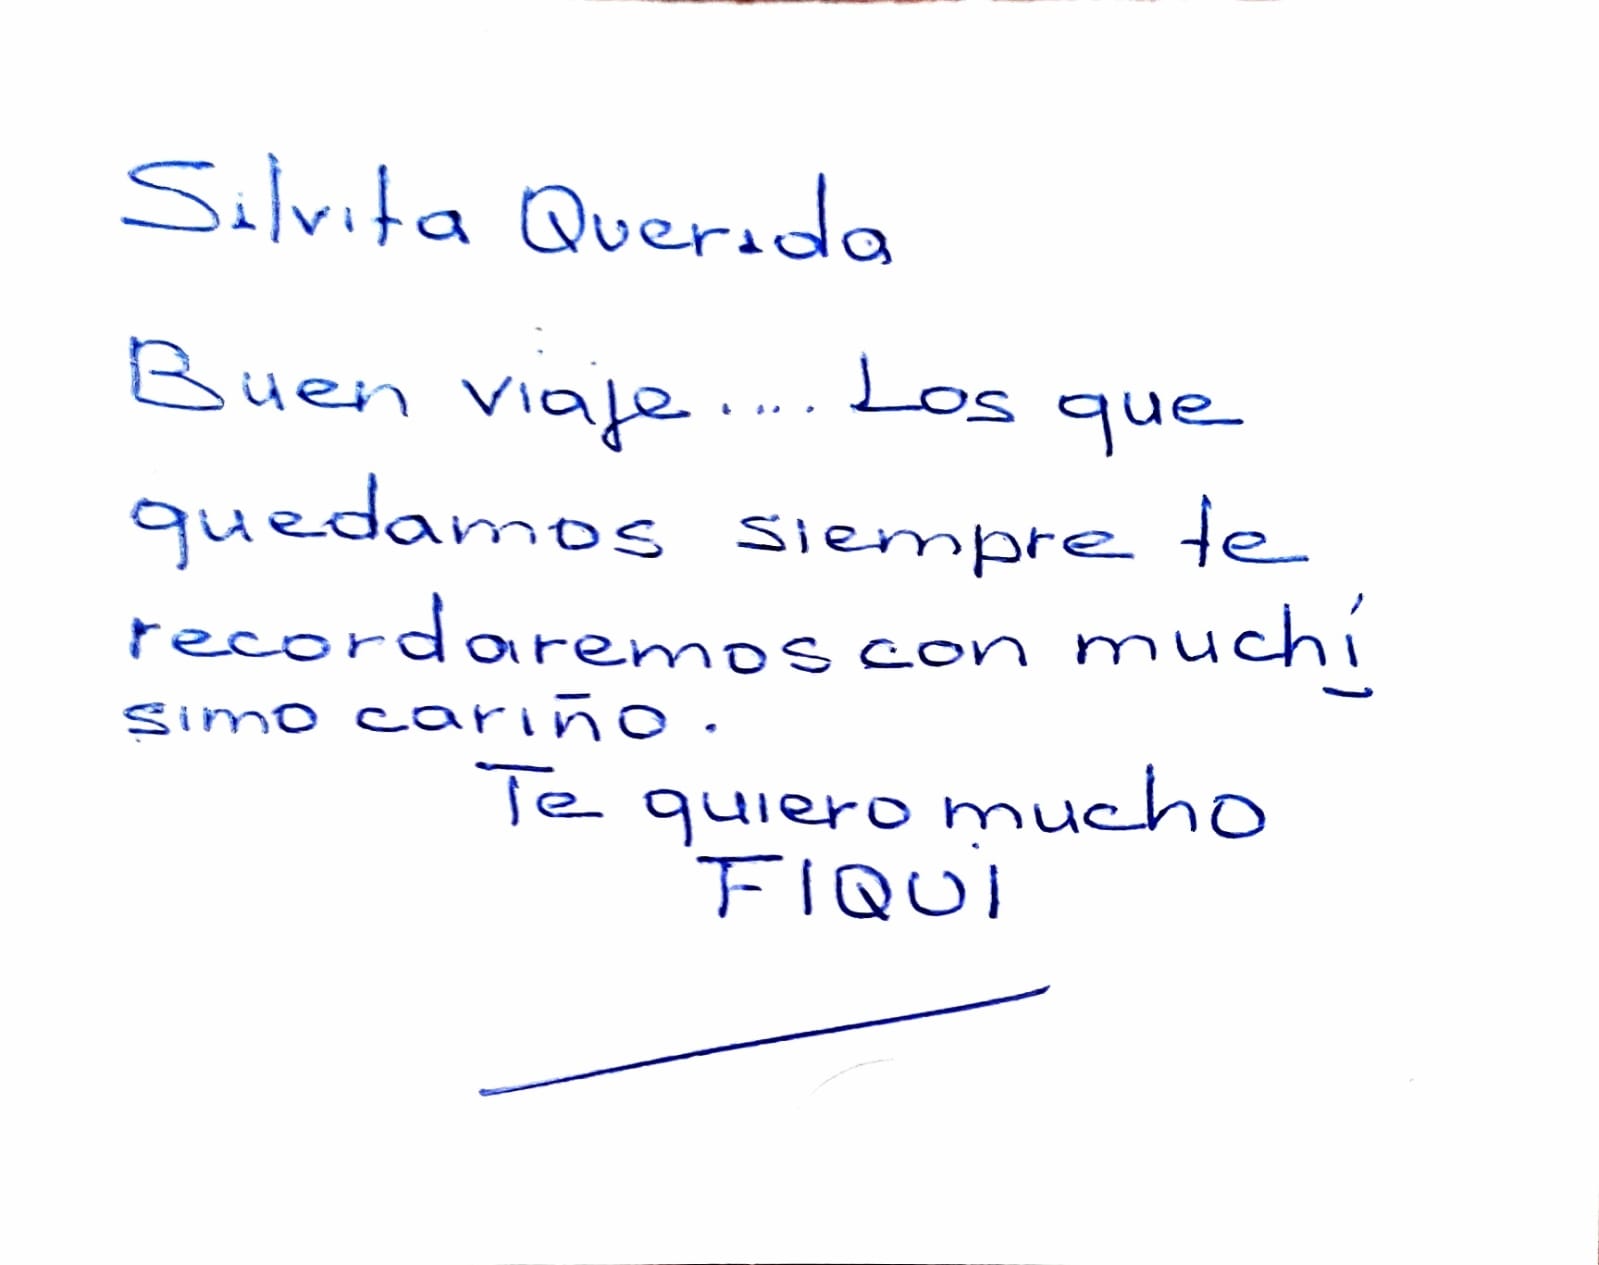 Silvita Querida
Buen viaje.... Los que
quedamos siempre te
recordaremos con muchí
simo cariño.
Te quiero mucho
FIQUI